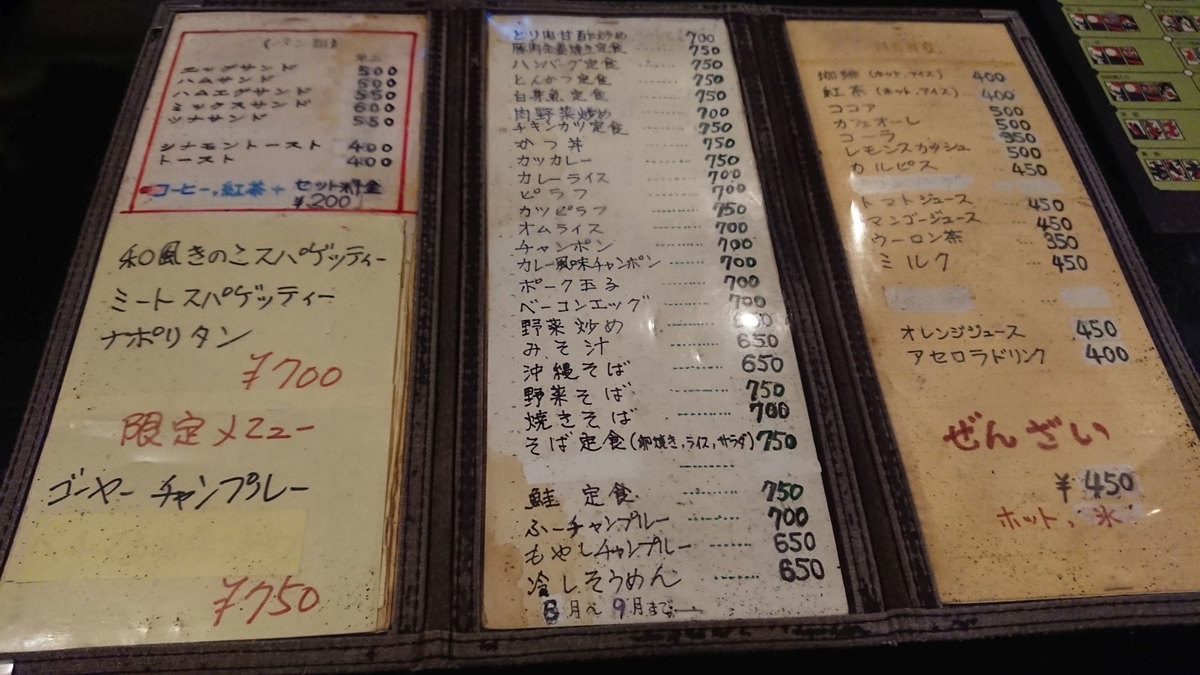 《パン類》
単品
エッグサンド 500
ハムサンド 500
ハムエッグサンド 550
ミックスサンド 600
ツナサンド 550
シナモントースト 400
トースト 400
コーヒー,紅茶+セット料金
¥200
和風きのこスパゲッティー
ミートスパゲッティー
ナポリタン
¥700
限定メニュー
ゴーヤーチャンプルー
¥750
とり肉甘酢炒め 700
豚肉生姜焼き定食 750
ハンバーグ定食 750
とんかつ定食 750
白身魚定食 750
肉野菜炒め 700
チキンカツ定食 750
かつ丼 750
カツカレー 750
カレーライス 700
ピラフ 700
カツピラフ 750
オムライス 700
チャンポン 700
カレー風味チャンポン 700
ポーク玉子 700
ベーコンエッグ 700
野菜炒め 650
みそ汁 650
沖縄そば 650
野菜そば 750
焼きそば 700
そば定食(卵焼き,ライス,サラダ) 750
鮭定食 750
ふーチャンプルー 700
もやしチャンプルー 650
冷しそうめん 650
8月〜9月まで
MENU
珈琲(ホット,アイス) 400
紅茶(ホット,アイス) 400
ココア 500
カフェオーレ 500
コーラ 350
レモンスカッシュ 500
カルピス 450
トマトジュース 450
マンゴージュース 450
ウーロン茶 350
ミルク 450
オレンジジュース 450
アセロラドリンク 400
ぜんざい
¥450
ホット,氷